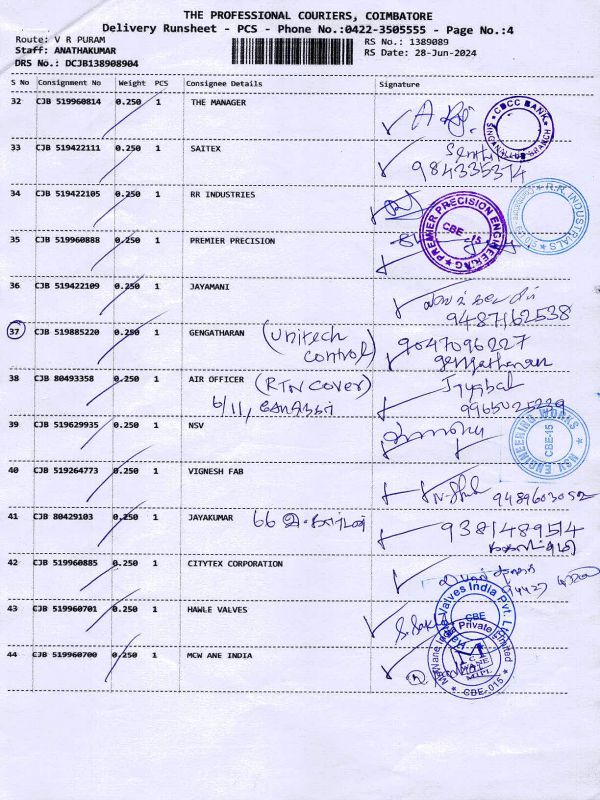 THE PROFESSIONAL COURIERS, COIMBATORE
Delivery Runsheet - PCS - Phone No.:0422-3505555 - Page No.:4
Route: V R PURAM
RS No.: 1389089
Staff: ANATHAKUMAR
RS Date: 28-Jun-2024
DRS No.: DCJB138908904
S No Consignment No Weight PCS Consignee Details Signature
32 CJB 519960814 0.250 1 THE MANAGER
33 CJB 519422111 0.250 1 SAITEX
984335374
34 CJB 519422105 0.250 1 RR INDUSTRIES
R.R. INDUSTRIES
35 CJB 519960888 0.250 1 PREMIER PRECISION
PREMIER PRECISION ENGINEERING
CBE-15
36 CJB 519422109 0.250 1 JAYAMANI
9487162538
37 CJB 519885220 0.250 1 GENGATHARAN (Unitech control) 9047096227
gengatharan
38 CJB 80493358 0.250 1 AIR OFFICER (RTN COVER)
6/11,
9965025229
39 CJB 519629935 0.250 1 NSV
NSV ENGINEERING WORKS
CBE-15
40 CJB 519264773 0.250 1 VIGNESH FAB
9489603052
41 CJB 80429103 0.250 1 JAYAKUMAR 66 9381489514
42 CJB 519960885 0.250 1 CITYTEX CORPORATION
43 CJB 519960701 0.250 1 HAWLE VALVES
Valves India Pvt. L
CBE
44 CJB 519960700 0.250 1 MCW ANE INDIA
Private Limited
CBE-015